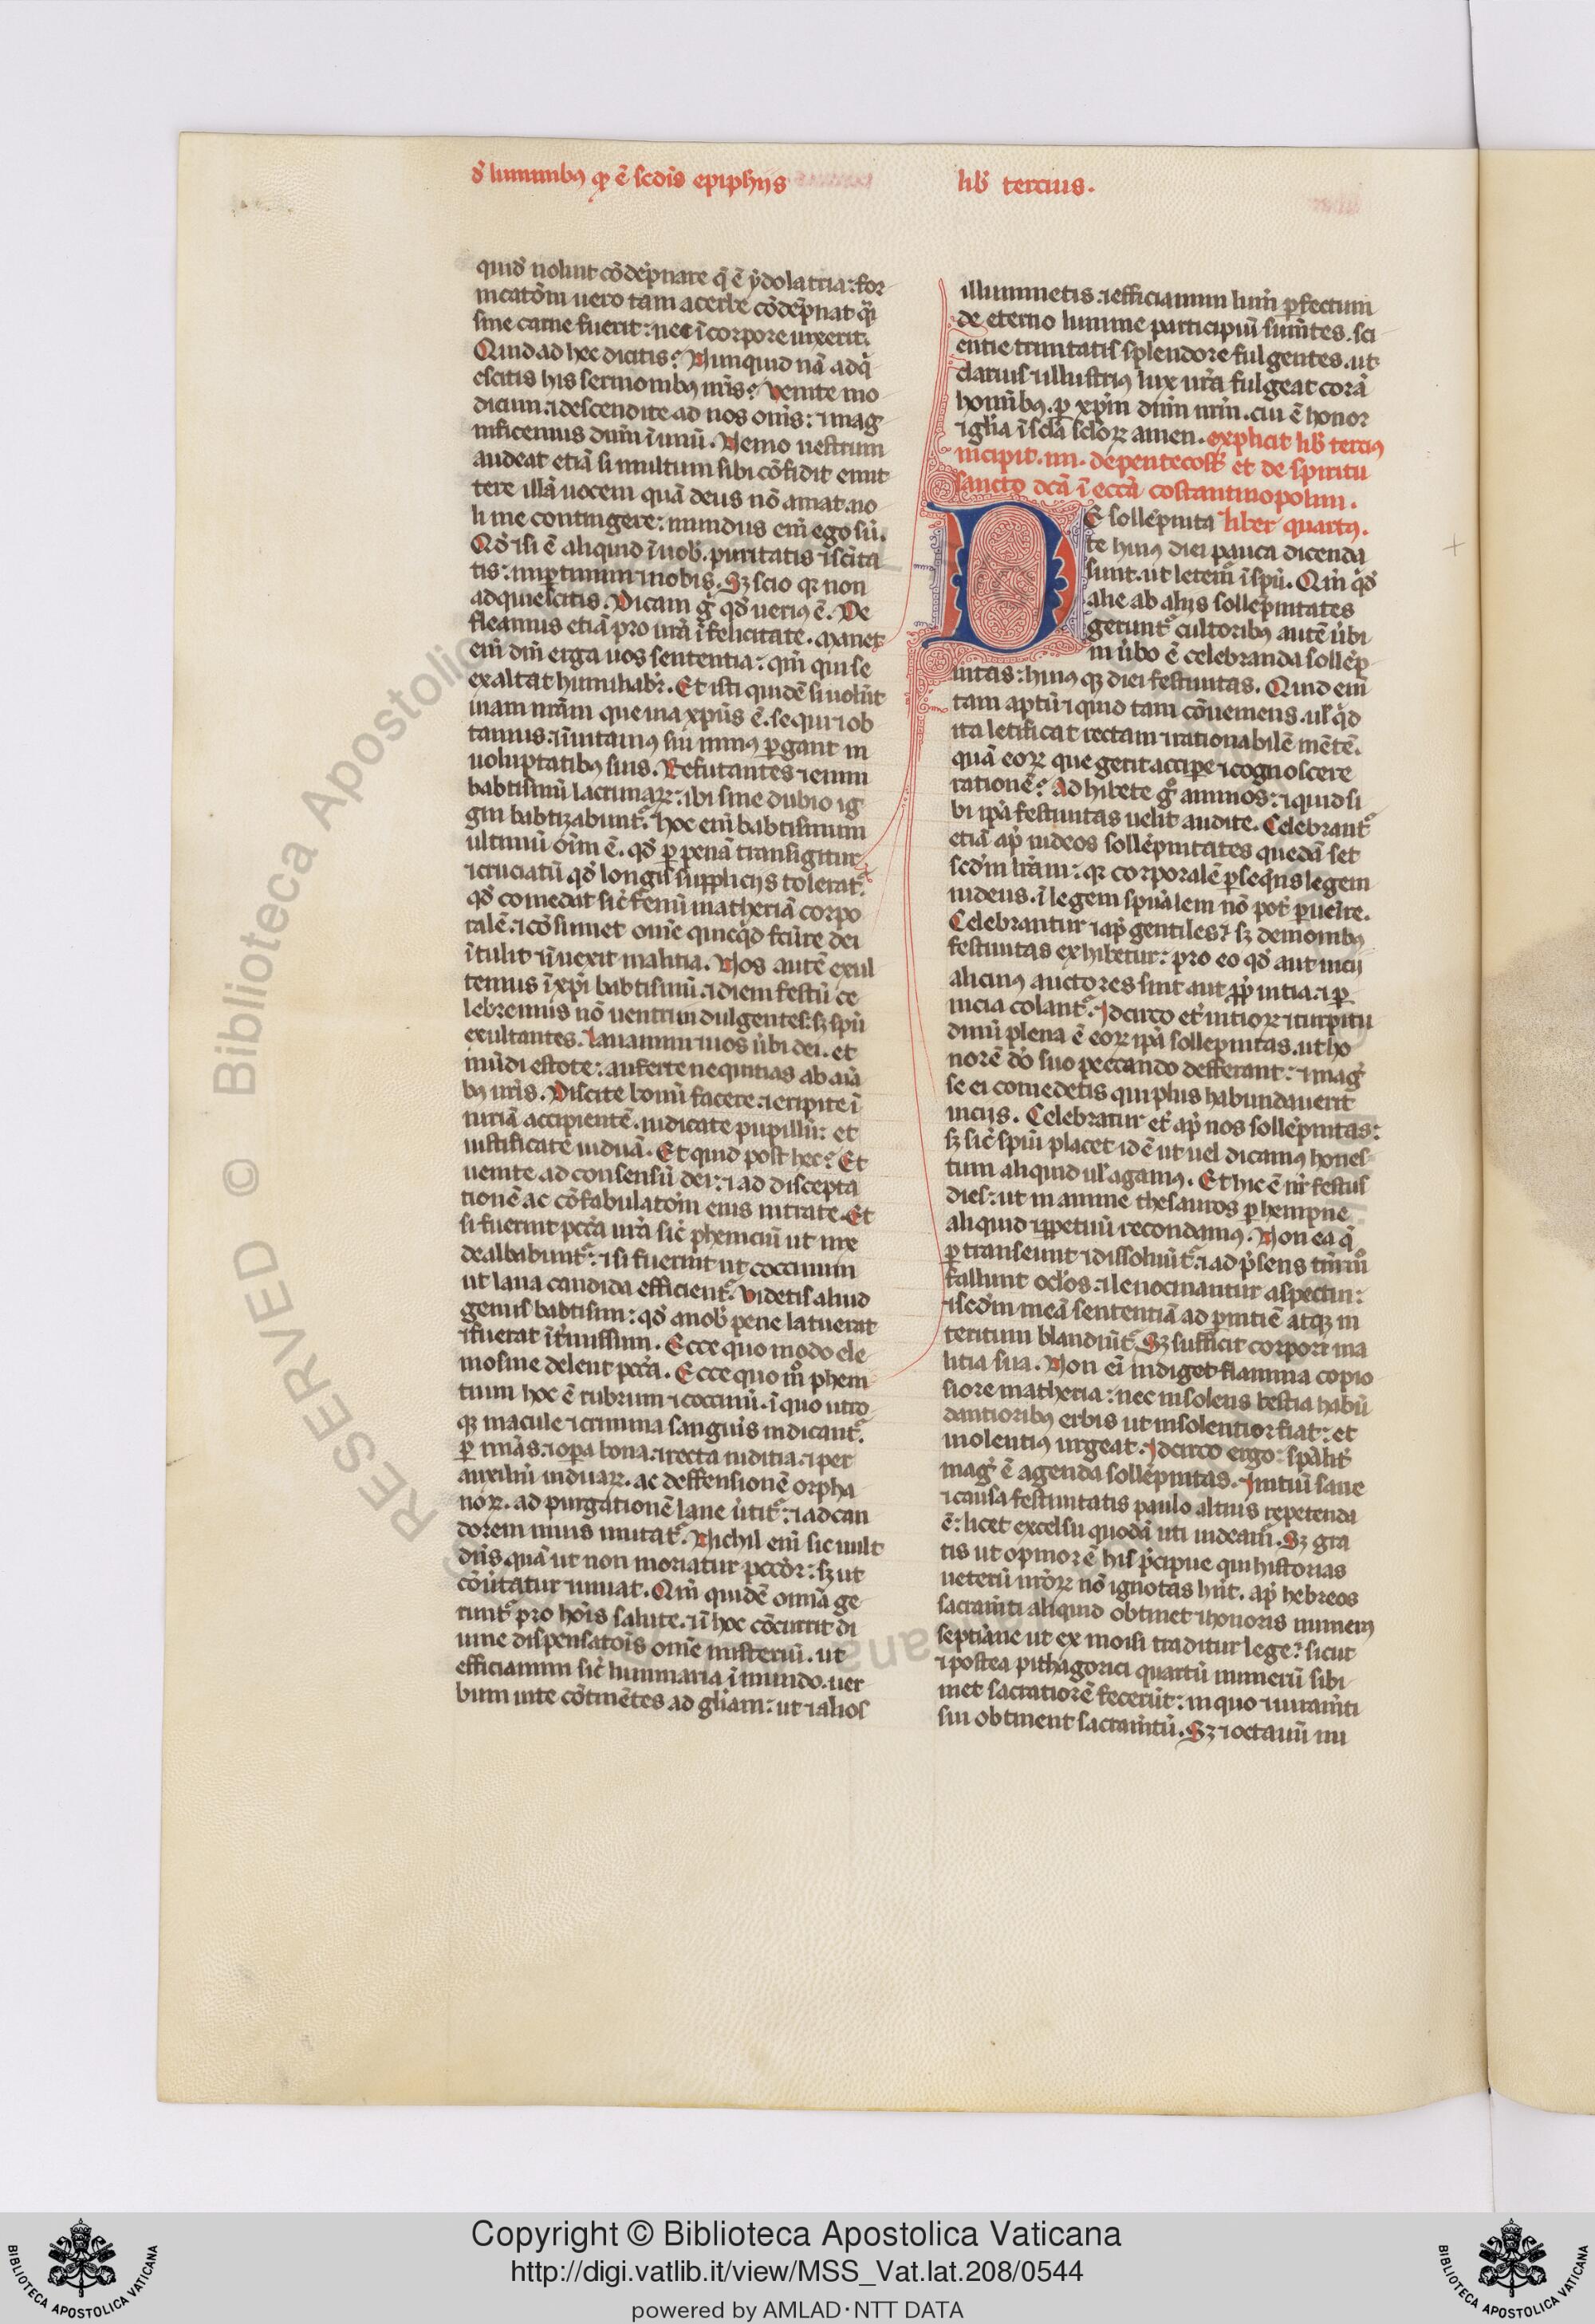 đ luminibꝰ qđ ē scd̄is epiphijs
lib̄ tercius.
quid nolunt cōdēpnare q̄ ē ydolatria: for
nicatōm uero tam acerbe cōdēpnat q̄i
sine carne fuerit: nec ī corpore uixerit.
Quid ad hec dicitis? Nunquid nā adq̇
escitis his sermonibꝰ nr̄is? Venite mo
dicum. ⁊ descendite ad nos om̄s: ⁊ mag
nificemus dn̄m ī unū. Nemo uestrum
audeat etiā si multum sibi cōfidit emit
tere illā uocem quā deus nō amat. no
li me contingere: mundus em̄ ego sū.
Qd̓ ⁊ si ē aliquid ī uob̓. puritatis ⁊ scīta
tis: impertimini nobis. Sꝫ scio qꝛ non
adquiescitis. Dicam g̊ qd̓ ueriꝰ ē. De
fleamus etiā pro ur̄a īfelicitate. Manet
em̄ dn̄i erga uos sententia: qm̄ qui se
exaltat humiliabr̄. Et isti quidē si uolūt
uiam nr̄am que uia xp̄us ē. sequi ⁊ ob
tamus. ⁊ īuitamꝰ sin minꝰ ꝑgant in
uoluptatibꝰ suis. Refutantes ⁊ enim
babtismū lacrimaꝝ: ibi sine dubio ig
gni babtizabunt᷑. Hoc em̄ babtismum
ultimū om̄i ē. qd̓ ꝑ penā transigitur
⁊ cruciatū qd̓ longis supplicijs tolerat᷑.
qd̓ comedat sic̄ fenū matheriā corpo
ralē. ⁊ cōsumet om̄e quicq̇d
ītulit ⁊ īuexit malitia. Nos autē exul
temus ī xp̄i babtismū. ⁊ diem festū ce
lebremus nō uentri indulgentes: sꝫ spū
exultantes. Lauamini ⁊ uos ūbi dei. et
mūdi estote: auferte nequitias ab aīa
bꝰ ur̄is. Discite bonū facere. ⁊ eripite ī
iuriā accipientē. iudicate pupillū: et
iustificate uiduā. Et quid post hec? Et
uenite ad consensū dei: ⁊ ad discepta
tionē ac cōfabulatōm eius intrate. Et
si fuerint pcc̄a ur̄a sic̄ pheniciū ut niue
dealbabunt᷑: ⁊ si fuerint ut coccinum
ut lana candida efficient᷑. Videtis aliud
genus babtismi: qd̓ a nob̓ pene latuerat
⁊ fuerat ītmissum. Ecce quo modo ele
mosine delent pcc̄a. Ecce quo m̊ pheni
tium hoc ē rubrum ⁊ coccinū. ī quo utro
qꝫ macule ⁊ crimina sanguis indicant᷑.
⁊ oꝑa bona. ⁊ recta iuditia. ⁊ per
auxiliū uiduaꝝ. ac deffensionē orpha
noꝝ. ad purgationē lane ūtit᷑: ⁊ ad can
dorem niuis mutat᷑. Nichil em̄ sic uult
dn̄s quā ut non moriatur pcc̄or: sꝫ ut
cōūtatur ⁊ uiuat. Qm̄ quidē omīa ge
runt᷑ pro ho͞is salute. ⁊ ī hoc cōcurrit di
uine dispensatōis om̄e misteriū. ut
efficiamini sic̄ luminaria ī mundo. uer
bum uite cōtinētes ad gl̄iam: ut ⁊ alios
illuminetis. ⁊ efficiamini lum̄ ꝑfectum
de eterno lumine participiū sum̄tes. sci
entie trinitatis splendore fulgentes. ut
clarius ⁊ illustriꝰ lux ur̄a fulgeat corā
homībꝰ. ꝑ xp̄m dn̄m nr̄m. cui ē honor
⁊ gl̄ia ī scl̄a scl̄oꝝ amen. explicit lib̄ terciꝰ
incipit. iiii. de pentecost̄ et de spiritu
sancto dc̄ā ī ecc̄a costantinopolim.
DE sollēpnita liber quartꝰ.
te huiꝰ diei pauca dicenda
sunt. ut letem̄ ī spū. Qm̄ qd̓
alie ab alijs sollēpnitates
gerunt᷑ cultoribꝰ autē ūbi
in ūbo ē celebranda sollēp
nitas: huiꝰ qꝫ diei festiuitas. Quid em̄
tam aptū ⁊ quid tam cōueniens. ul̄ qd̓
ita letificat rectam ⁊ rationabilē mētē.
quā eoꝝ que gerit accipe ⁊ cognoscere
rationē? Adhibete g̊ animos: ⁊ quid si
bi ip̄a festiuitas uelit audite. Celebrant᷑
etiā ap̄ iudeos sollēpnitates quedā set
scd̄m lr̄am: qꝛ corporalē ꝑseq̄ns legem
iudeus. ī legem spūalem nō pot̄ ꝑuēīre.
Celebrantur ⁊ ap̄ gentiles: sꝫ demonibꝰ
festiuitas exhibetur: pro eo qd̓ aut uicij
alicuiꝰ auctores sint aut ꝓpiintia: ⁊ ꝑ
uicia colant᷑. Idcirco et̄ uitioꝝ ⁊ turpitu
dinū plena ē eoꝝ ip̄a sollepnitas. ut ho
norē dō suo peccando defferant: ⁊ mag̓
se ei comedetis qui plus habundauerit
uicijs. Celebratur et̄ ap̄ nos sollēpnitas:
sꝫ sic̄ spūi placet id ē ut uel dicamꝰ hones
tum aliquid ul̄ agamꝰ. Et hic ē nr̄ festus
dies: ut in anime thesauros ꝑhempne
aliquid ⁊ ꝑpetuū recondamꝰ. Non ea q̄
ꝑtranseunt ⁊ dissoluūt᷑: ⁊ ad p̄sens
fallunt ocl̄os: ⁊ lenocinantur aspectui:
⁊ scd̄m meā sententiā ad ꝑnitiē atqꝫ in
teritum blandiūt᷑. Sꝫ sufficit corpori ma
litia sua. Non em̄ indiget flamma copio
siore matheria: nec insolens bestia habū
dantioribꝰ erbis ut insolentior fiat: et
uiolentiꝰ urgeat. Idcirco ergo: spālit̄
mag̓ ē agenda sollēpnitas. Initiū sane
⁊ causa festiuitatis paulo altius repetenda
ē: licet excelsu quodā uti uidear̄. Sꝫ gra
tis ut opinor ē his p̄cipue qui historias
ueterū uir̄oꝝ nō ignotas hn̄t. ap̄ hebreos
sacram̄ti aliquid obtinet ⁊ honoris numerꝰ
septīane ut ex moisi traditur lege: sicut
⁊ postea pithagorici quartū numerū sibi
met sacratiorē fecerūt: in quo ⁊ iuram̄ti
sui obtinent sacram̄tū. Sꝫ ⁊ octauū nu
RESERVED © Biblioteca Apostolica Vaticana
Copyright © Biblioteca Apostolica Vaticana
http://digi.vatlib.it/view/MSS_Vat.lat.208/0544
powered by AMLAD·NTT DATA
BIBLIOTECA APOSTOLICA VATICANA
BIBLIOTECA APOSTOLICA VATICANA